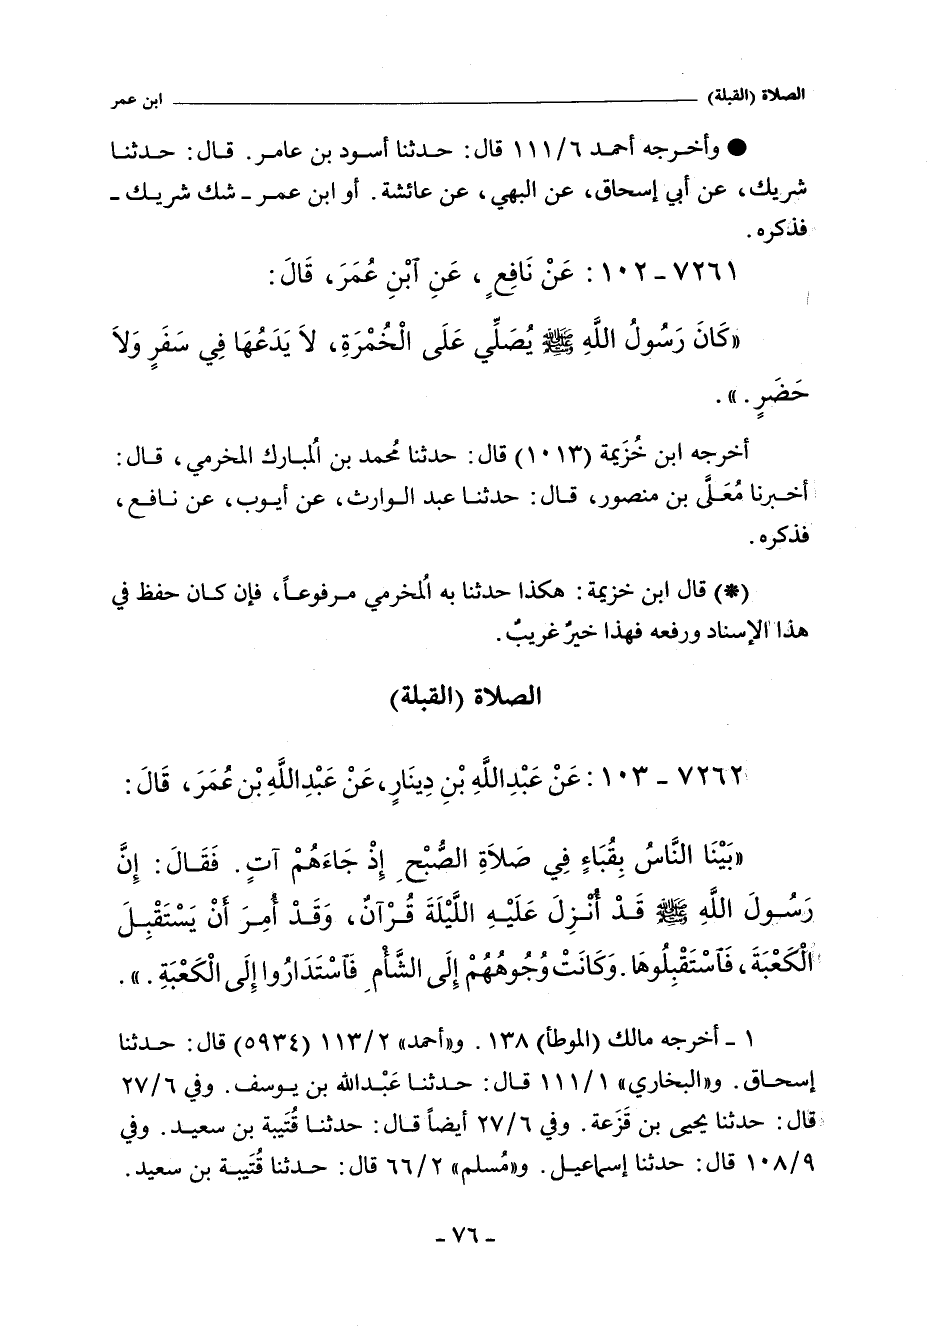 الصلاة (القبلة) ابن عمر
● وأخرجه أحمد ١١١/٦ قال: حدثنا أسود بن عامر. قال: حدثنا
شريك، عن أبي إسحاق، عن البهي، عن عائشة. أو ابن عمر ـ شك شريك ـ
فذكره.
٧٢٦١ ـ ١٠٢: عَنْ نَافِعٍ، عَنِ آبْنِ عُمَرَ، قَالَ:
«كَانَ رَسُولُ اللَّهِ ﷺ يُصَلِّي عَلَى الْخُمْرَةِ، لاَ يَدَعُهَا فِي سَفَرٍ وَلاَ
حَضَرٍ.».
أخرجه ابن خُزَيمة (١٠١٣) قال: حدثنا مُحمد بن اُلمبارك المخرمي، قال:
أخبرنا مُعَلَّى بن منصور، قال: حدثنا عبد الوارث، عن أيوب، عن نافع،
فذكره.
(*) قال ابن خزيمة: هكذا حدثنا به اُلمخرمي مرفوعاً، فإن كان حفظ في
هذا الإسناد ورفعه فهذا خبرٌ غريبٌ.
الصلاة (القبلة)
٧٢٦٢ ـ ١٠٣: عَنْ عَبْدِاللَّهِ بْنِ دِينَارٍ، عَنْ عَبْدِاللَّهِ بْنِ عُمَرَ، قَالَ:
«بَيْنَا النَّاسُ بِقُبَاءٍ فِي صَلاَةِ الصُّبْحِ إِذْ جَاءَهُمْ آتٍ. فَقَالَ: إِنَّ
رَسُولَ اللَّهِ ﷺ قَدْ أُنْزِلَ عَلَيْهِ اللَّيْلَةَ قُرْآنٌ، وَقَدْ أُمِرَ أَنْ يَسْتَقْبِلَ
الْكَعْبَةَ، فَآسْتَقْبِلُوهَا. وَكَانَتْ وُجُوهُهُمْ إِلَى الشَّأْمِ فَآسْتَدَارُوا إِلَى الْكَعْبَةِ.».
١ ـ أخرجه مالك (الموطأ) ١٣٨. و«أحمد» ١١٣/٢ (٥٩٣٤) قال: حدثنا
إسحاق. و«البخاري» ١١١/١ قال: حدثنا عَبْدالله بن يوسف. وفي ٢٧/٦
قال: حدثنا يحيى بن قَزَعة. وفي ٢٧/٦ أيضاً قال: حدثنا قُتَيبة بن سعيد. وفي
١٠٨/٩ قال: حدثنا إسماعيل. و«مُسلم» ٦٦/٢ قال: حدثنا قُتَيبة بن سعيد.
ـ ٧٦ ـ